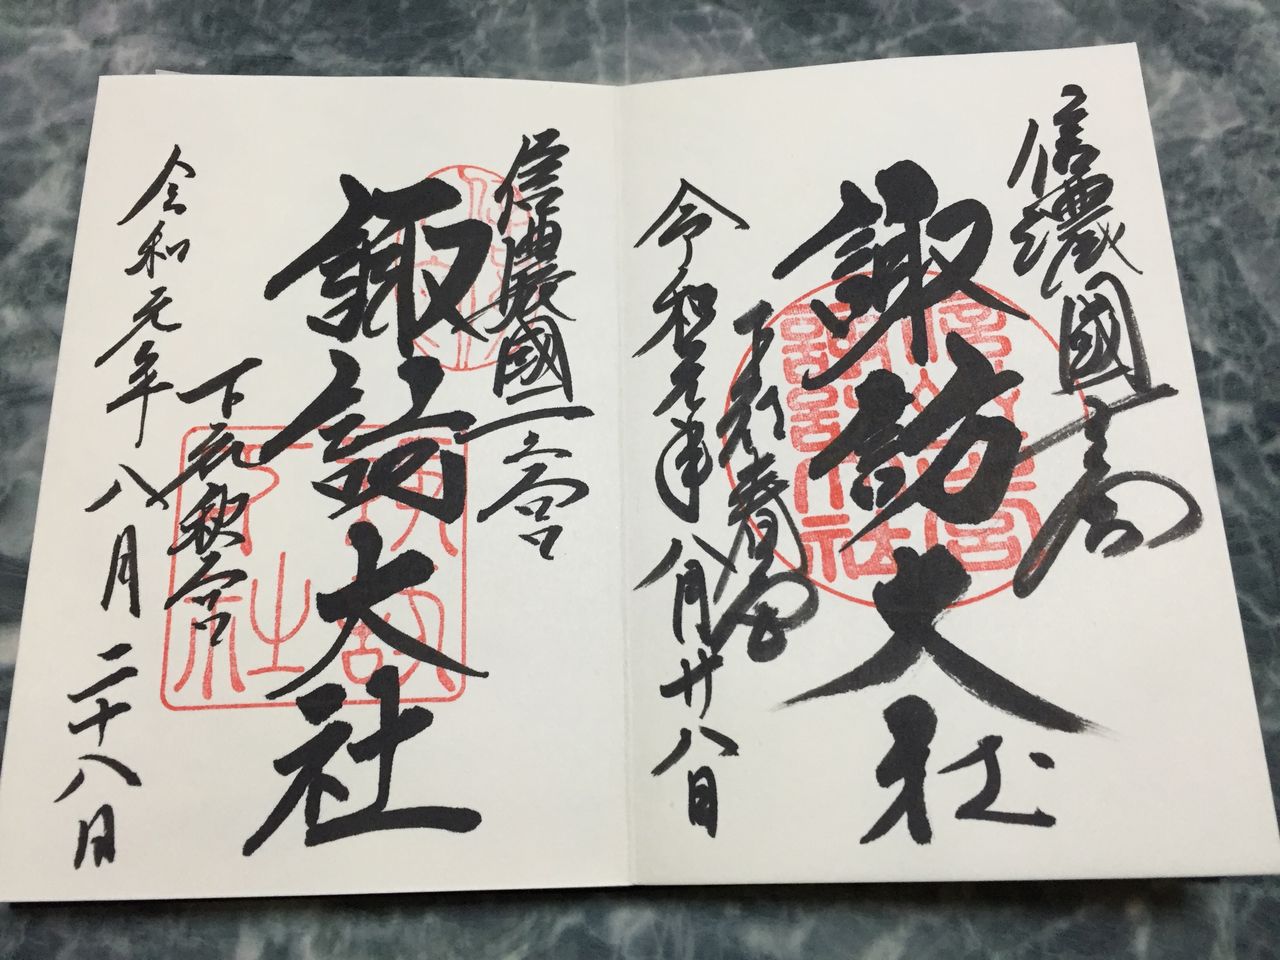 信濃國一之宮
諏訪大社
下社春宮
令和元年八月廿八日
信濃國一之宮
諏訪大社
下社秋宮
令和元年八月二十八日